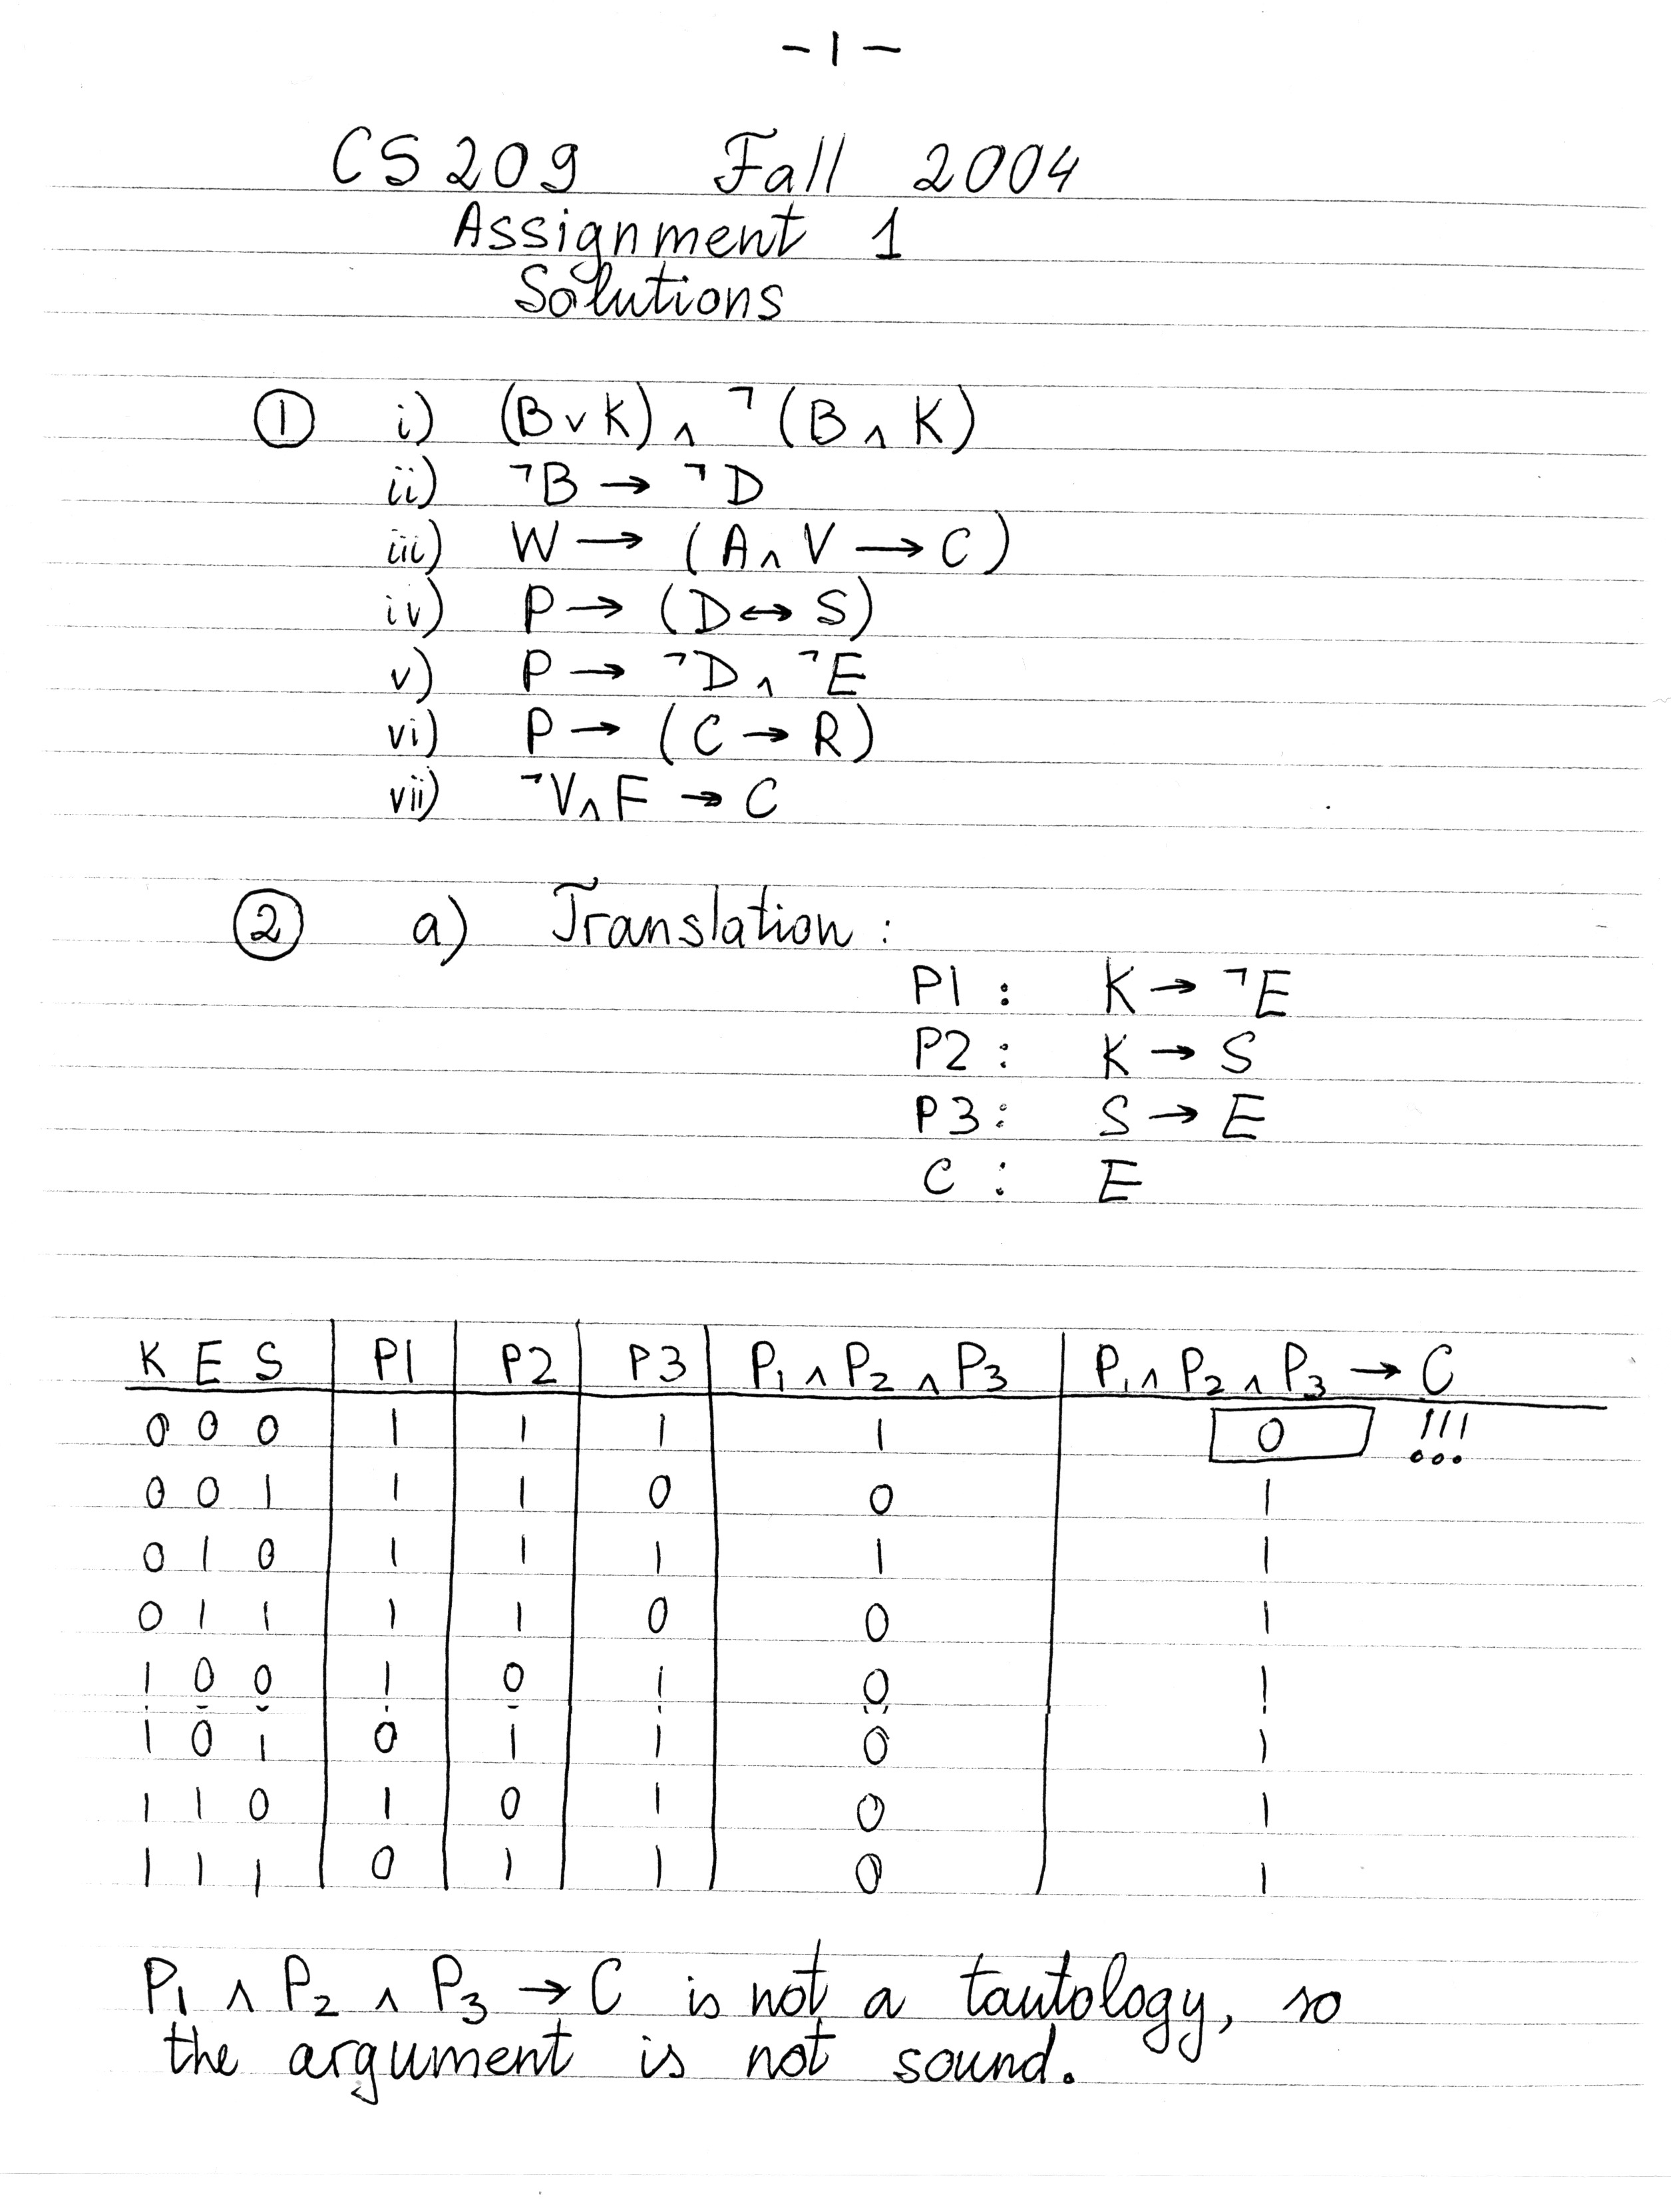 -1-
CS 209 Fall 2004
Assignment 1
Solutions
① i) (B∨K)∧¬(B∧K)
ii) ¬B→¬D
iii) W→(A∧V→C)
iv) P→(D↔S)
v) P→¬D∧¬E
vi) P→(C→R)
vii) ¬V∧F→C
② a) Translation:
P1: K→¬E
P2: K→S
P3: S→E
C: E
K E S P1 P2 P3 P₁∧P₂∧P₃ P₁∧P₂∧P₃→C
0 0 0 1 1 1 1 0 !!!
0 0 1 1 1 0 0 1
0 1 0 1 1 1 1 1
0 1 1 1 1 0 0 1
1 0 0 1 0 1 0 1
1 0 1 0 1 1 0 1
1 1 0 1 0 1 0 1
1 1 1 0 1 1 0 1
P₁∧P₂∧P₃→C is not a tautology, so
the argument is not sound.